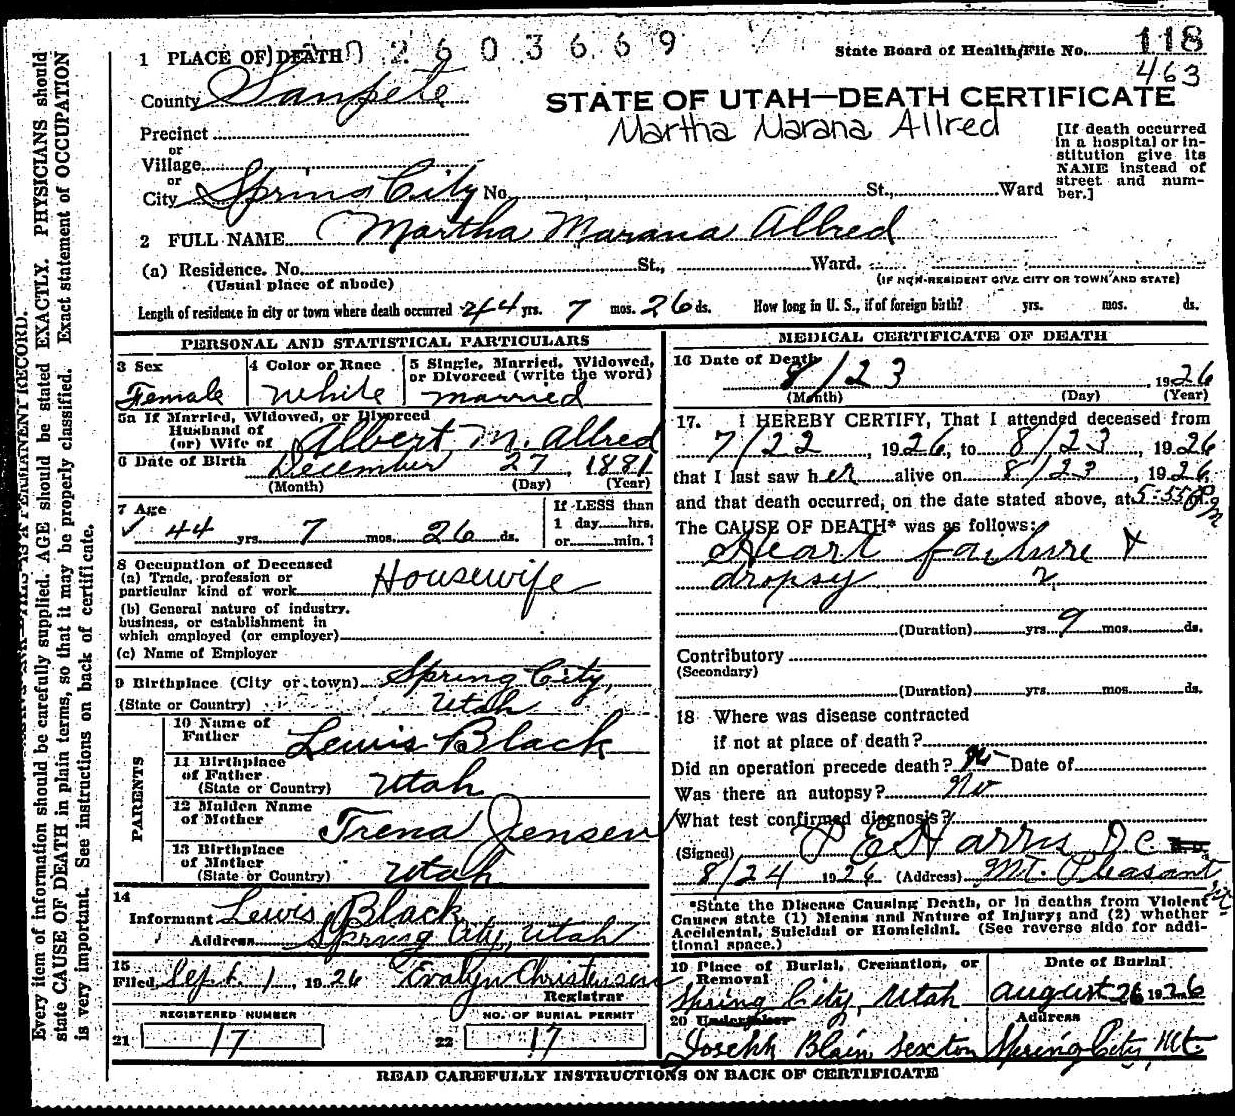 1 PLACE OF DEATH 0 2 6 0 3 6 6 9
State Board of Health File No. 118
463
County Sanpete
STATE OF UTAH—DEATH CERTIFICATE
Martha Marana Allred
Precinct
or
Village
or
City Spring City No. St., Ward
[If death occurred
in a hospital or in-
stitution give its
NAME instead of
street and num-
ber.]
2 FULL NAME Martha Marana Allred
(a) Residence. No. St., Ward.
(Usual place of abode)
(IF NON-RESIDENT GIVE CITY OR TOWN AND STATE)
Length of residence in city or town where death occurred 44 yrs. 7 mos. 26 ds. How long in U. S., if of foreign birth? yrs. mos. ds.
PERSONAL AND STATISTICAL PARTICULARS
3 Sex
Female
4 Color or Race
White
5 Single, Married, Widowed,
or Divorced (write the word)
married
5a If Married, Widowed, or Divorced
Husband of
(or) Wife of Albert M. Allred
6 Date of Birth December 27, 1881
(Month) (Day) (Year)
7 Age
44 yrs. 7 mos. 26 ds.
If LESS than
1 day hrs.
or min. ?
8 Occupation of Deceased
(a) Trade, profession or
particular kind of work Housewife
(b) General nature of industry.
business, or establishment in
which employed (or employer)
(c) Name of Employer
9 Birthplace (City or town) Spring City,
(State or Country) Utah
PARENTS
10 Name of
Father Lewis Black
11 Birthplace
of Father
(State or Country) Utah
12 Maiden Name
of Mother Trena Jensen
13 Birthplace
of Mother
(State or Country) Utah
14
Informant Lewis Black
Address Spring City, Utah
15
Filed Sept. 1, 1926 Evalyn Christensen
Registrar
REGISTERED NUMBER
21 17
NO. OF BURIAL PERMIT
22 17
MEDICAL CERTIFICATE OF DEATH
16 Date of Death
8/23, 1926
(Month) (Day) (Year)
17. I HEREBY CERTIFY, That I attended deceased from
7/22, 1926, to 8/23, 1926
that I last saw her alive on 8/23, 1926,
and that death occurred, on the date stated above, at 5-55 Pm
The CAUSE OF DEATH* was as follows:
Heart failure &
dropsy
(Duration) yrs. 9 mos. ds.
Contributory
(Secondary)
(Duration) yrs. mos. ds.
18 Where was disease contracted
if not at place of death?
Did an operation precede death? No Date of
Was there an autopsy? No
What test confirmed diagnosis?
(Signed) P E Harris D C
8/24 1926 (Address) Mt. Pleasant Ut.
*State the Disease Causing Death, or in deaths from Violent
Causes state (1) Means and Nature of Injury; and (2) whether
Accidental, Suicidal or Homicidal. (See reverse side for addi-
tional space.)
19 Place of Burial, Cremation, or
Removal
Spring City, Utah
Date of Burial
August 26 1926
20 Undertaker
Joseph Blain Sexton
Address
Spring City, Ut
READ CAREFULLY INSTRUCTIONS ON BACK OF CERTIFICATE
Every item of information should be carefully supplied. AGE should be stated EXACTLY. PHYSICIANS should
state CAUSE OF DEATH in plain terms, so that it may be properly classified. Exact statement of OCCUPATION
is very important. See instructions on back of certificate.